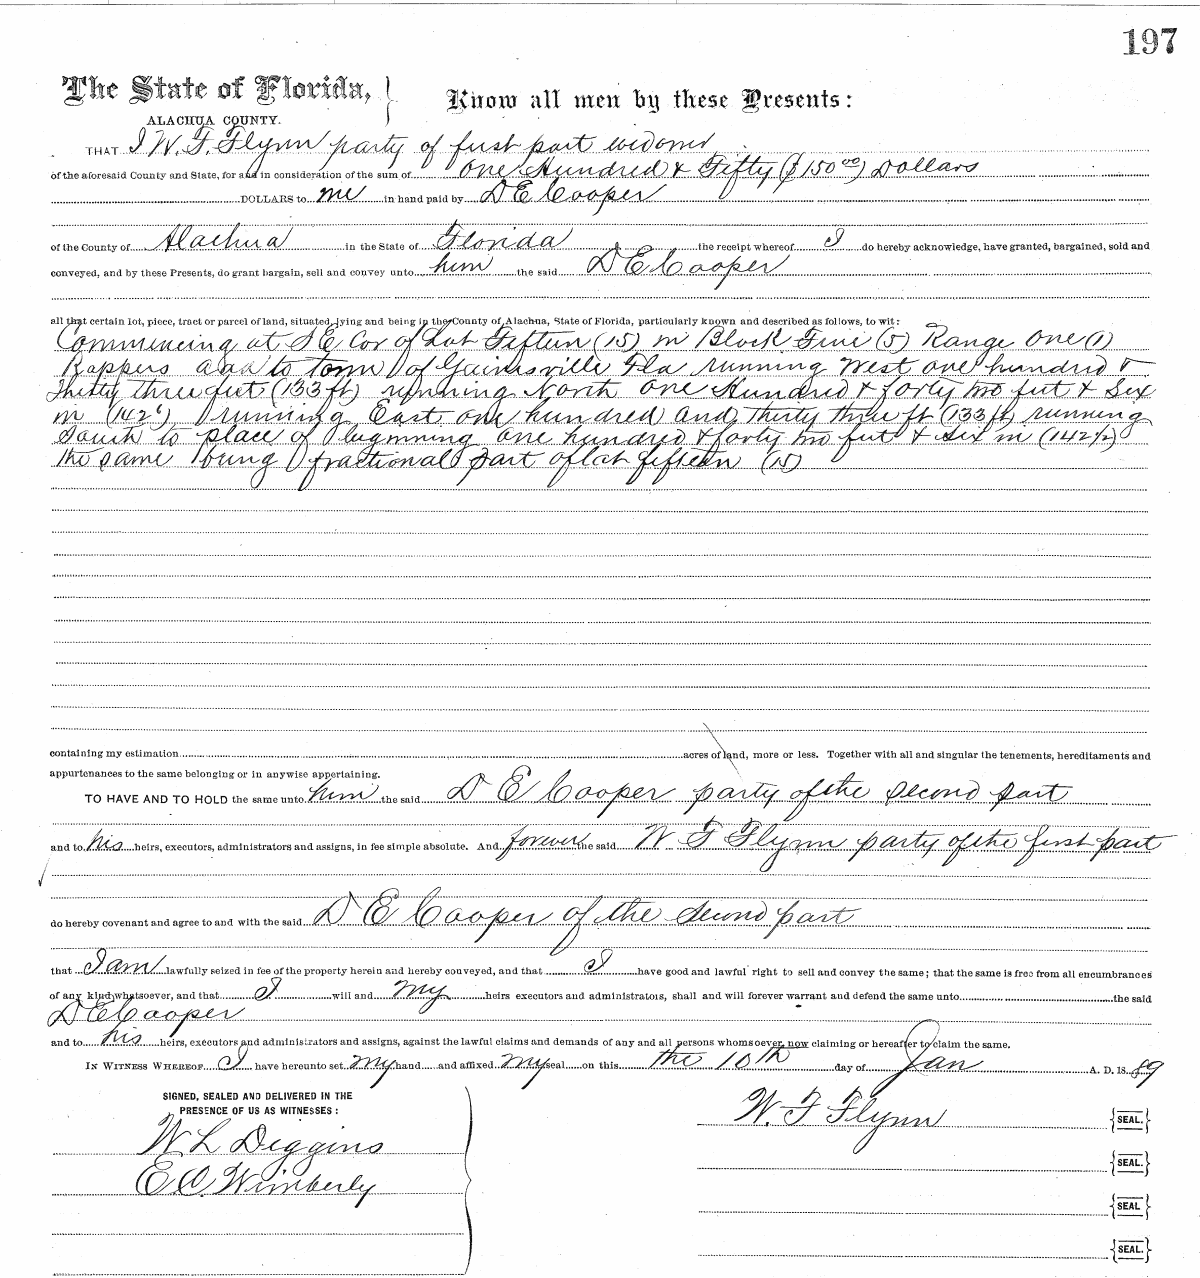 197
The State of Florida,
ALACHUA COUNTY.
Know all men by these Presents:
THAT I W. F. Flynn party of first part widower
of the aforesaid County and State, for and in consideration of the sum of one Hundred & Fifty ($150 00) Dollars
DOLLARS to me in hand paid by D E Cooper
of the County of Alachua in the State of Florida the receipt whereof I do hereby acknowledge, have granted, bargained, sold and
conveyed, and by these Presents, do grant bargain, sell and convey unto him the said D E Cooper
all that certain lot, piece, tract or parcel of land, situated, lying and being in the County of Alachua, State of Florida, particularly known and described as follows, to wit:
Commencing at S E Cor of Lot Fifteen (15) in Block Five (5) Range One (1)
add to town of Gainesville Fla running West one hundred &
thirty three feet (133 ft) running North one Hundred & forty two feet & Six
in (142 6) running East one hundred and thirty three ft (133 ft) running
South to place of beginning one hundred & forty two feet & six in (142½)
the same being fractional part of lot fifteen (15)
containing my estimation acres of land, more or less. Together with all and singular the tenements, hereditaments and
appurtenances to the same belonging or in anywise appertaining.
TO HAVE AND TO HOLD the same unto him the said D E Cooper party of the second part
and to his heirs, executors, administrators and assigns, in fee simple absolute. And forever the said W F Flynn party of the first part
do hereby covenant and agree to and with the said D E Cooper of the second part
that I am lawfully seized in fee of the property herein and hereby conveyed, and that I have good and lawful right to sell and convey the same; that the same is free from all encumbrances
of any kind whatsoever, and that I will and my heirs executors and administrators, shall and will forever warrant and defend the same unto the said
D E Cooper
and to his heirs, executors and administrators and assigns, against the lawful claims and demands of any and all persons whomsoever, now claiming or hereafter to claim the same.
IN WITNESS WHEREOF I have hereunto set my hand and affixed my seal on this the 10th day of Jan A. D. 18 89
SIGNED, SEALED AND DELIVERED IN THE
PRESENCE OF US AS WITNESSES:
W L Diggins
E C. Wimberly
W. F Flynn SEAL.
SEAL.
SEAL
SEAL.